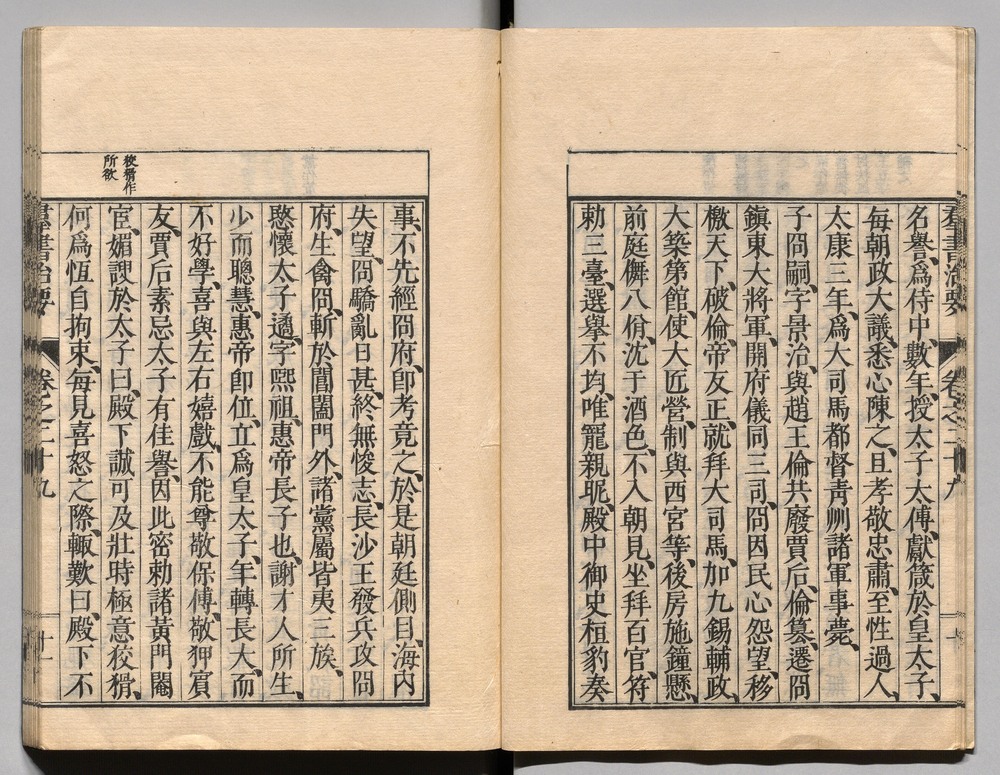 羣書治要 卷之二十九 十
名譽、爲侍中、數年、授太子太傅、獻箴於皇太子、
每朝政大議、悉心陳之、且孝敬忠肅、至性過人、
太康三年、爲大司馬都督青州諸軍事、薨、
子冏嗣、字景治、與趙王倫共廢賈后、倫篡、遷冏
鎭東大將軍、開府儀同三司、冏因民心怨望、移
檄天下、破倫、帝友正、就拜大司馬、加九錫輔政、
大築第館、使大匠營、制與西宮等、後房施鐘懸、
前庭儛八佾、沈于酒色、不入朝見、坐拜百官、符
勅三臺、選擧不均、唯寵親昵、殿中御史桓豹奏
事、不先經冏府、卽考竟之、於是朝廷側目、海內
失望、冏驕亂日甚、終無悛志、長沙王發兵攻冏
府、生禽冏、斬於閶闔門外、諸黨屬皆夷三族、
愍懷太子遹、字熙祖、惠帝長子也、謝才人所生、
少而聰慧、惠帝卽位、立爲皇太子、年轉長大、而
不好學、喜與左右嬉戲、不能尊敬保傅、敬狎賓
友、賈后素忌太子有佳譽、因此密勅諸黃門閹
宦、媚諛於太子曰、殿下誠可及壯時極意狡猾、
何爲恆自拘束、每見喜怒之際、輙歎曰、殿下不
狡猾作
所欲
羣書治要 卷之二十九 十一